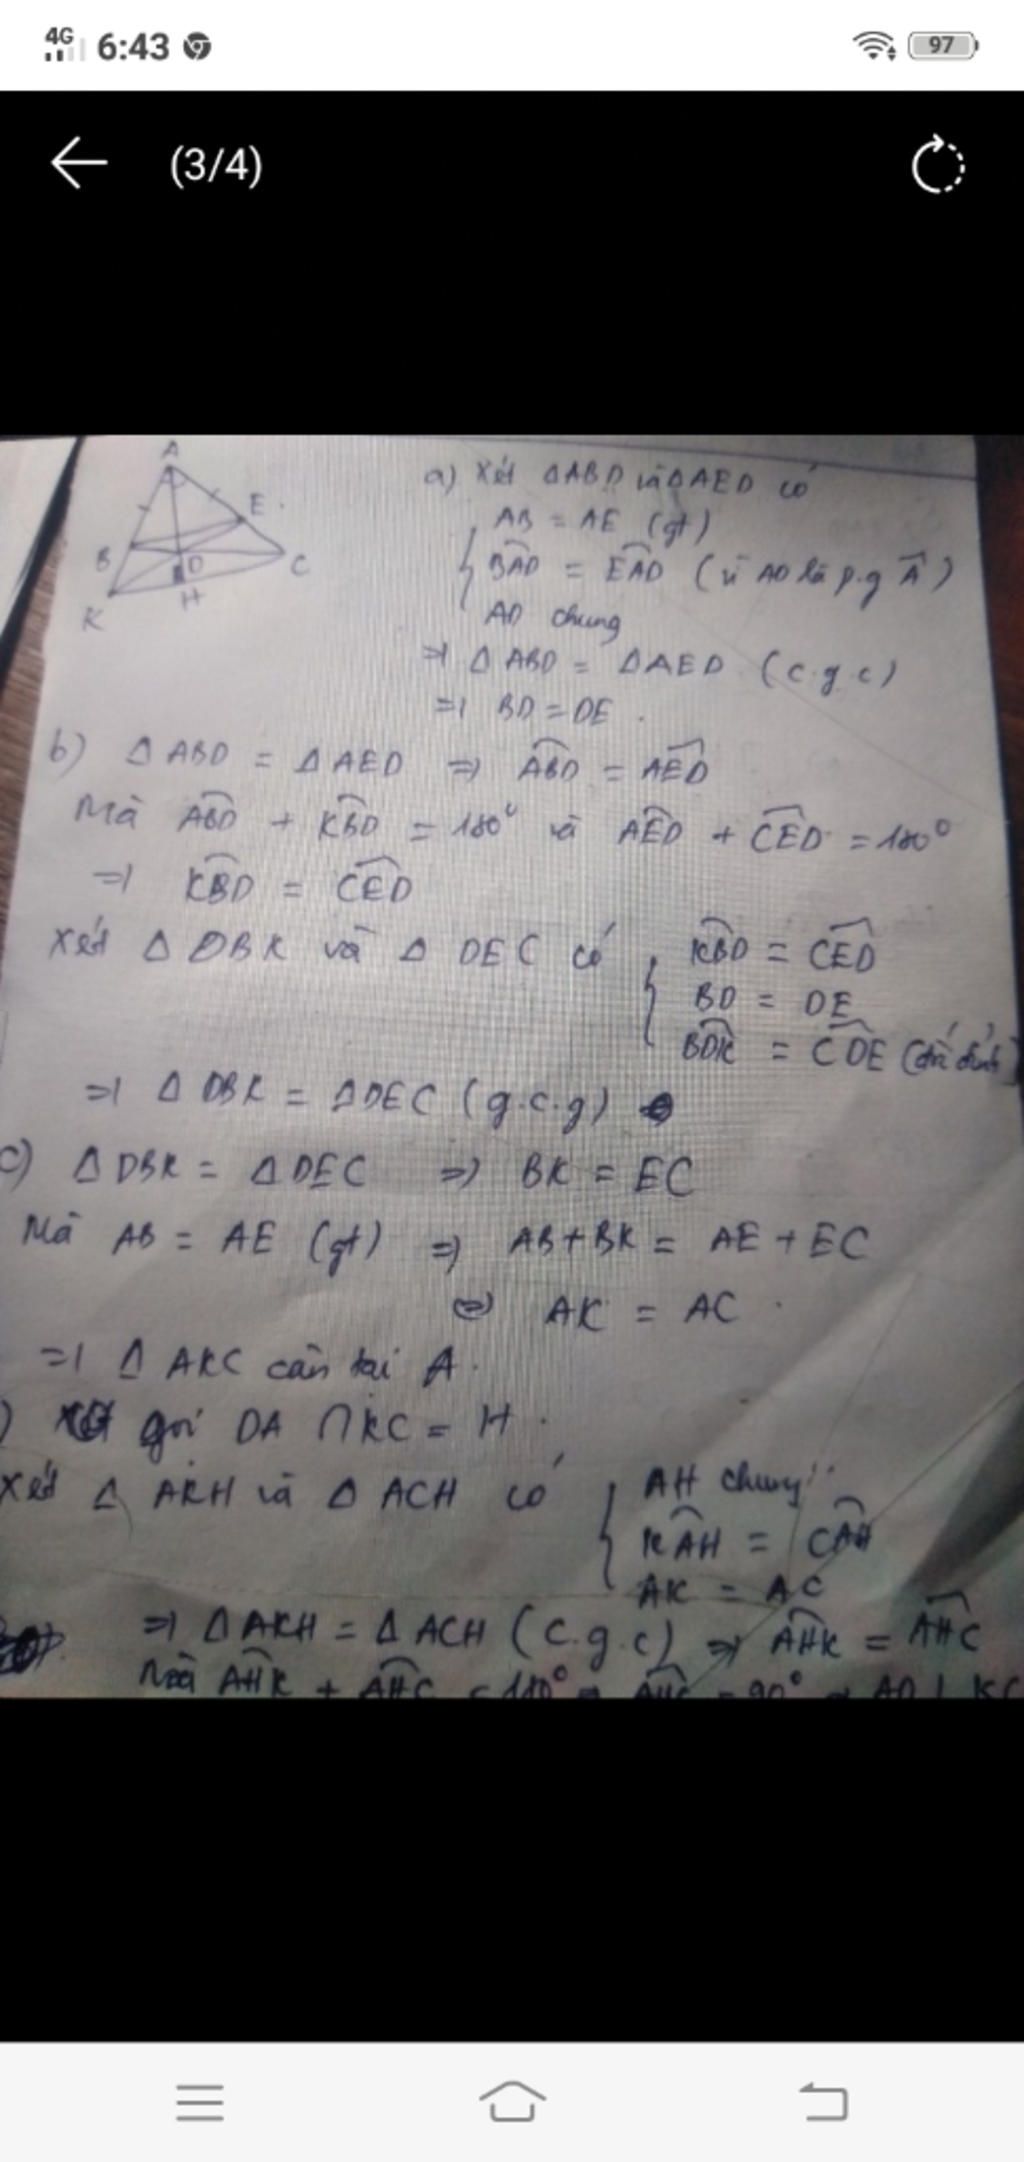 4G 6:43 97
(3/4)
A
E
B
D
C
K
H
a) Xét ΔABD và ΔAED có
AB = AE (gt)
BAD = EAD (vì AD là p.g A)
AD chung
=> Δ ABD = ΔAED (c.g.c)
=> BD = DE.
b) Δ ABD = Δ AED => ABD = AED
Mà ABD + KBD = 180° và AED + CED = 180°
=> KBD = CED
Xét Δ DBK và Δ DEC có
KBD = CED
BD = DE
BDK = CDE (đối đỉnh)
=> Δ DBK = ΔDEC (g.c.g)
c) Δ DBK = Δ DEC => BK = EC
Mà AB = AE (gt) => AB + BK = AE + EC
<=> AK = AC.
=> Δ AKC cân tại A.
) gọi DA ∩ KC = H.
Xét Δ AKH và Δ ACH có
AH chung
KAH = CAH
AK = AC
=> Δ AKH = Δ ACH (c.g.c) => AHK = AHC
Mà AHK + AHC = 180° => AHC = 90° => AD ⊥ KC